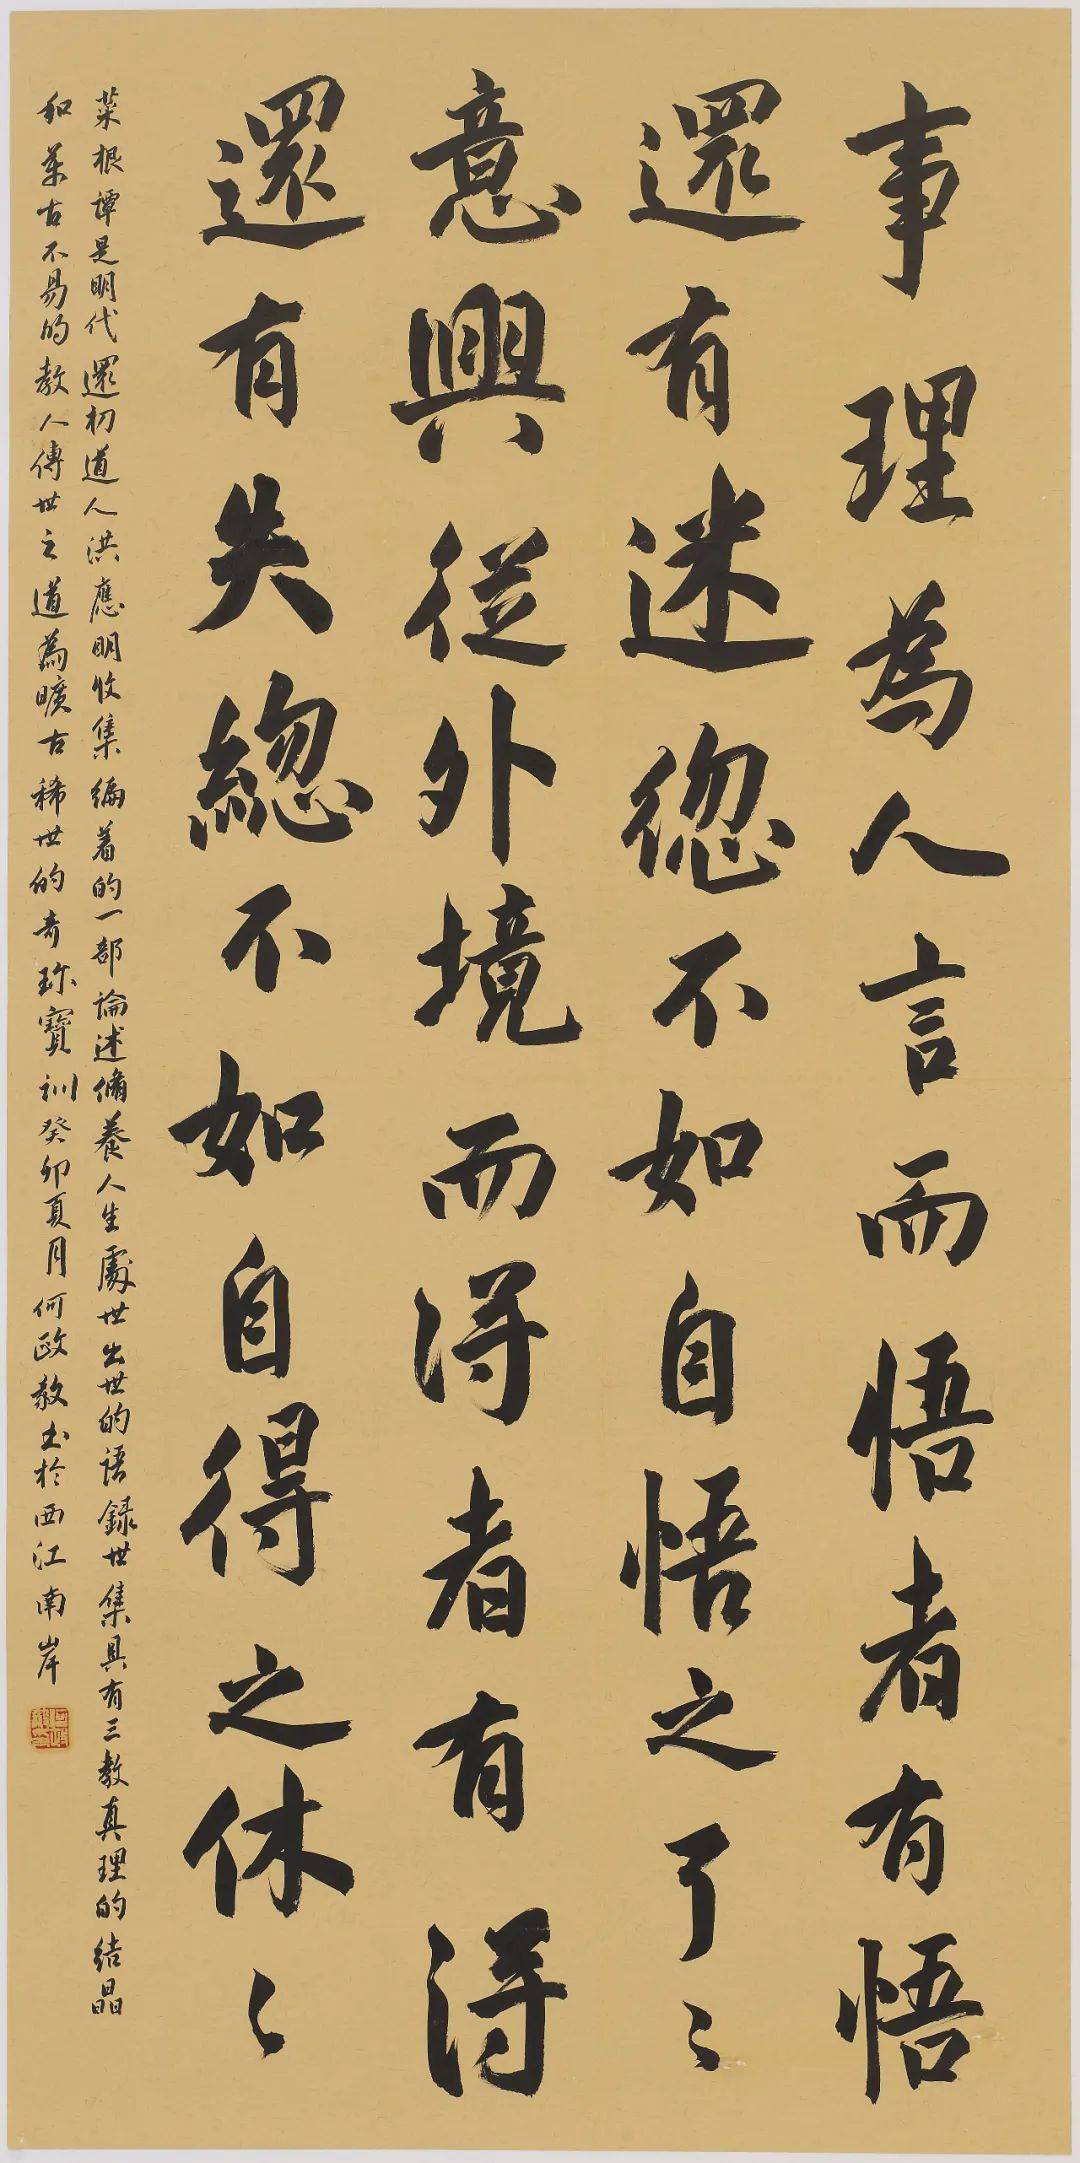 事理為人言而悟者有悟
還有迷總不如自悟之了〻
意興從外境而得者有得
還有失總不如自得之休〻
菜根譚是明代還初道人洪應明收集編着的一部論述脩養人生處世出世的语録世集具有三教真理的结晶
和萬古不易的教人傳世之道為曠古稀世的奇珎寶訓癸卯夏月何政教书於西江南岸